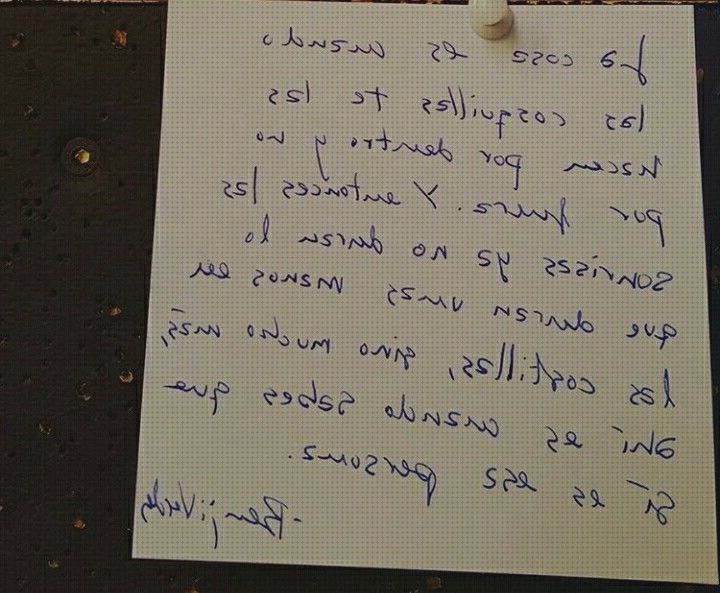 La cosa es cuando
las cosquillas te las
hacen por dentro y no
por fuera. Y entonces las
sonrisas ya no duran lo
que duran unas manos en
las costillas, sino mucho más,
ahí es cuando sabes que
sí es esa persona.
-Benji Verdes